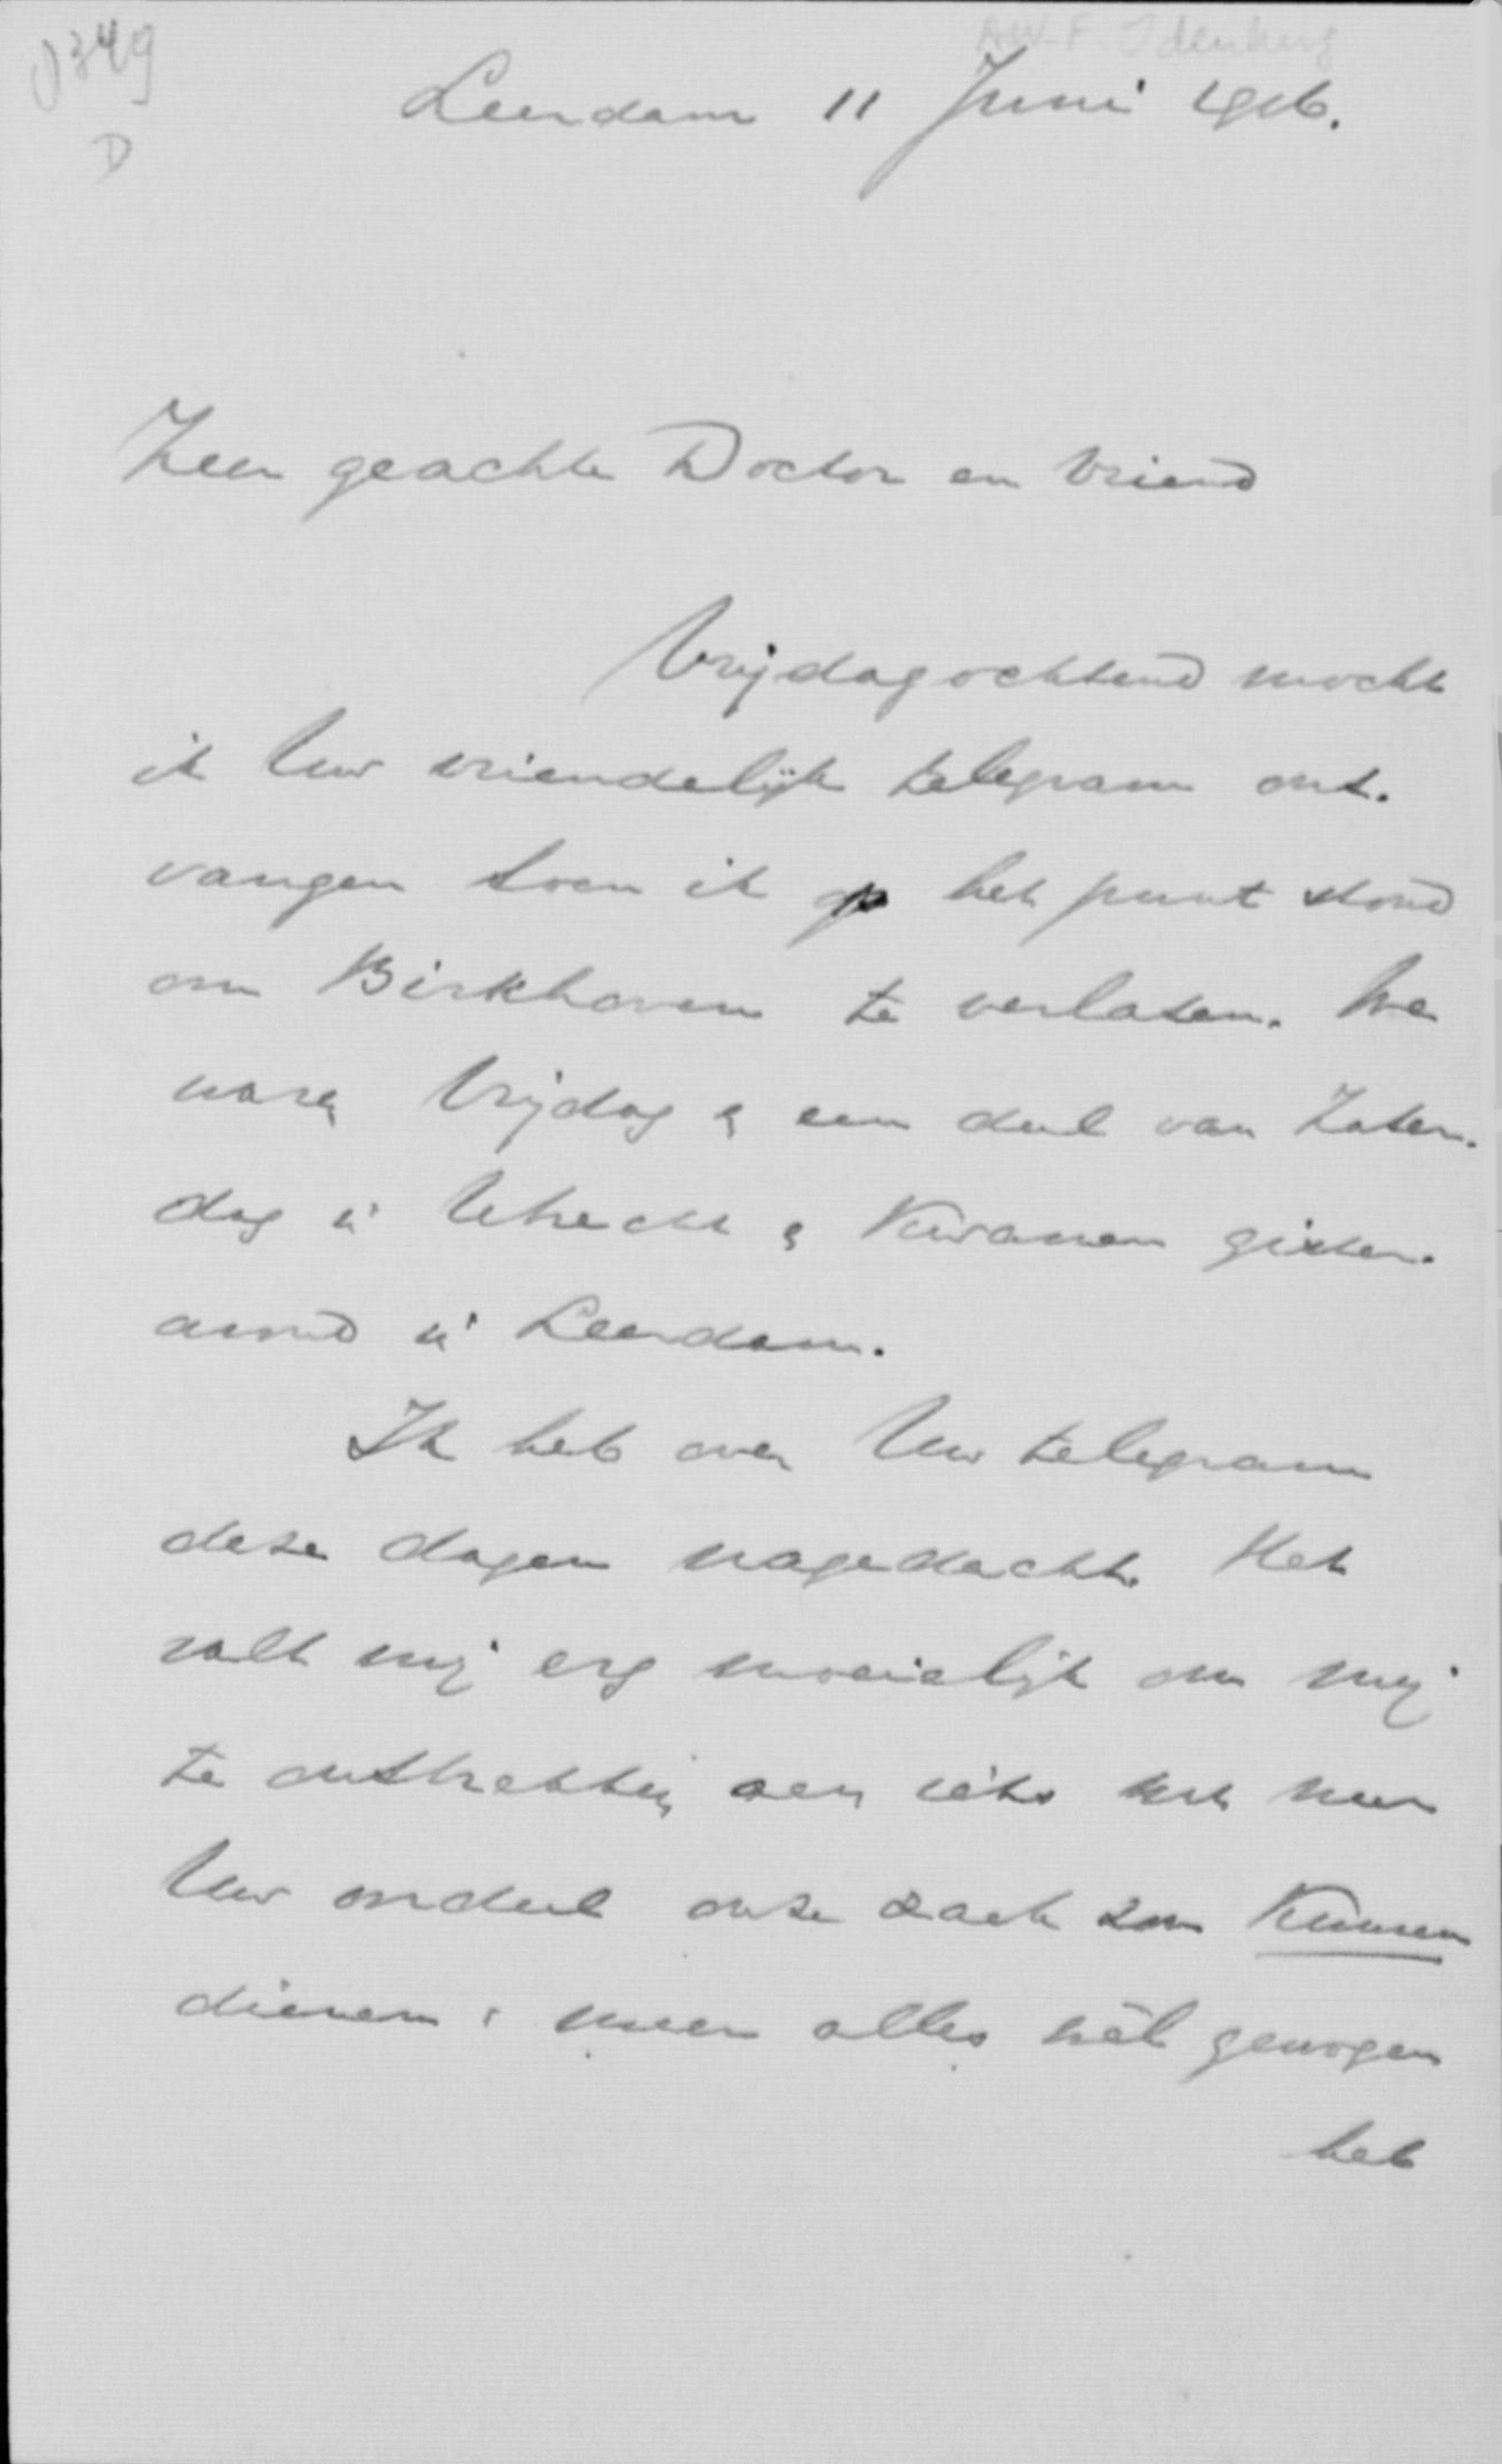 0349
D
A.W.F. Idenburg
Leerdam 11 Juni 1916.
Zeer geachte Doctor en Vriend
Vrijdagochtend mocht
ik Uw vriendelijk telegram ont-
vangen toen ik op het punt stond
om Birkhoven te verlaten. We
waren Vrijdag & een deel van Zater-
dag in Utrecht & kwamen gister-
avond in Leerdam.
Ik heb over Uw telegram
deze dagen nagedacht. Het
valt mij erg moeielijk om mij
te onttrekken aan iets wat naar
Uw oordeel onze zaak zou kunnen
dienen; maar alles wèl gewogen
heb